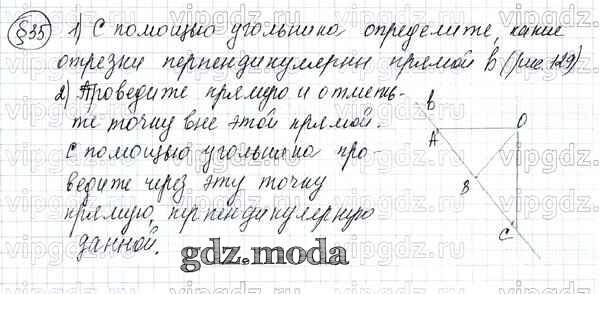 §35 1) С помощью угольника определите, какие
отрезки перпендикулярны прямой b (рис. 129)
2) Проведите прямую и отметь-
те точку вне этой прямой.
С помощью угольника про-
ведите через эту точку
прямую, перпендикулярную
данной.
b
A
O
B
C
gdz.moda
vipgdz.ru